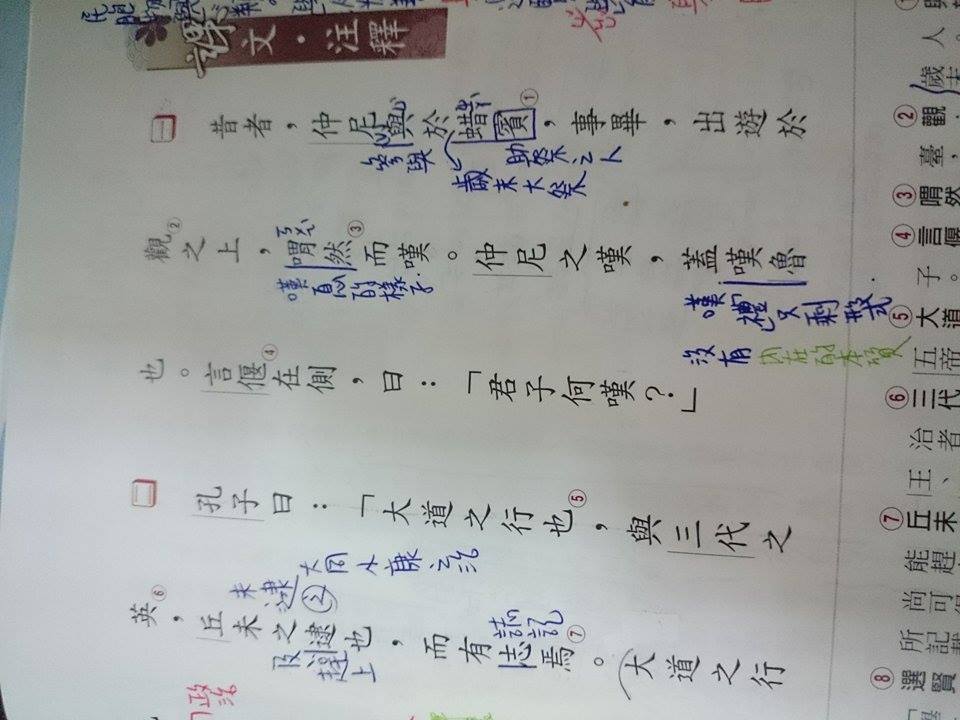 課文‧注釋
一 昔者，仲尼與於蜡賓①，事畢，出遊於
參與
助祭之人
歲末大祭
觀②之上，喟然③而嘆。仲尼之嘆，蓋嘆魯
嘆息的樣子
嘆禮只剩形式
沒有內在的本質
也。言偃④在側，曰：「君子何嘆？」
二 孔子曰：「大道之行也⑤，與三代之
大同小康之說
英⑥，丘未之逮也，而有志焉⑦。大道之行
未逮之
及
趕上
政治
人。
歲末
②觀
臺，
③喟然
④言偃
子。
⑤大道
五帝
⑥三代
治者
王、
⑦丘未
能趕
尚可
所記
⑧選賢